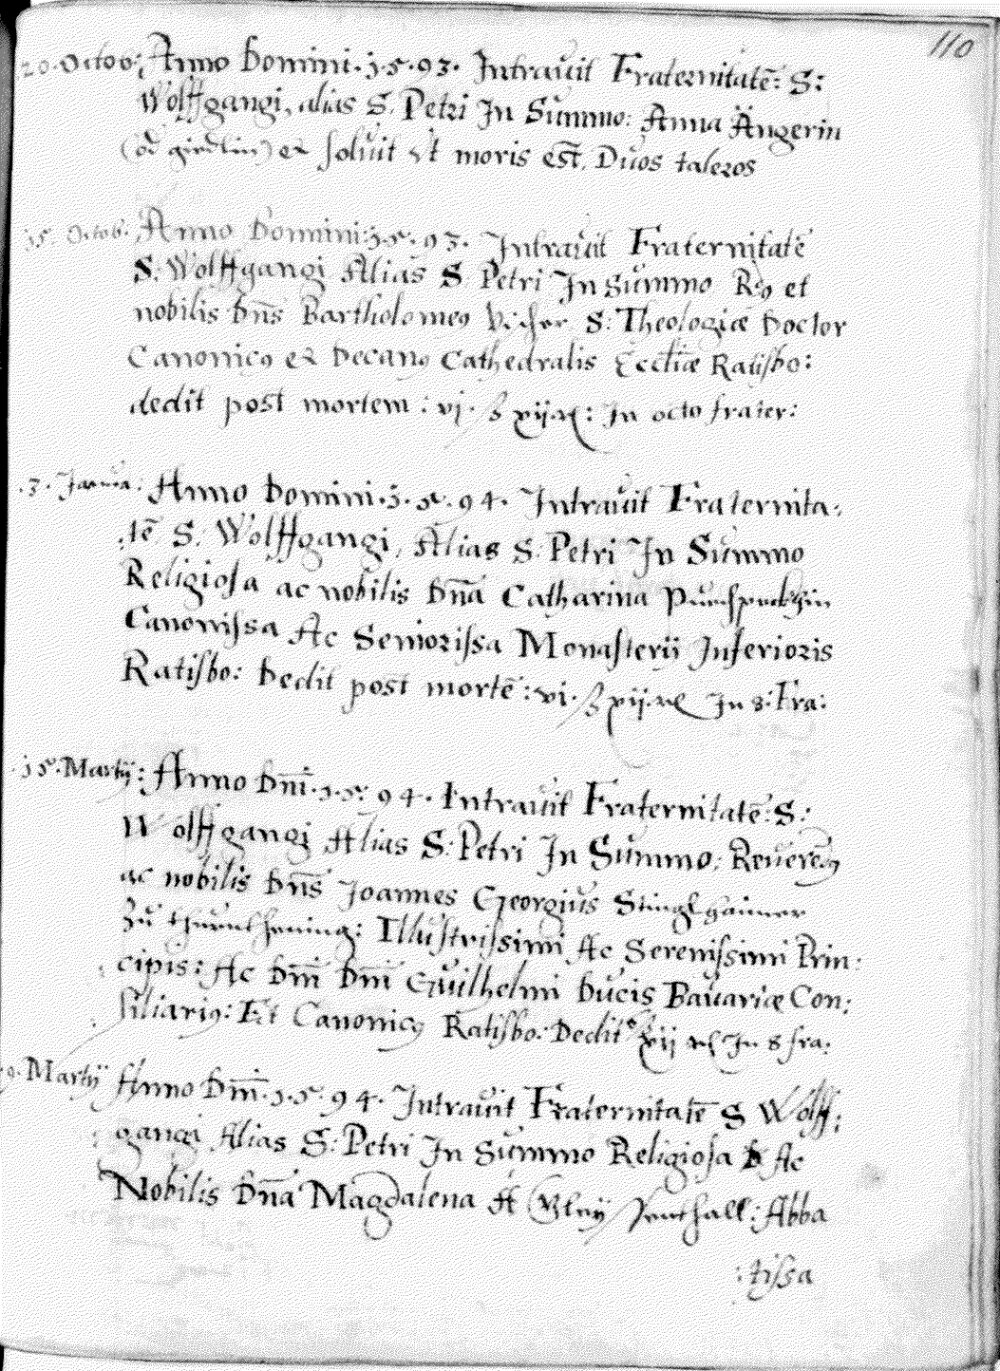 110
20. Octob: Anno Domini. 1593. Intravit Fraternitatē: S:
Wolffgangi, alias S. Petri In Summo: Anna Angerin
et solvit ut moris est, Duos taleros
15. Octob. Anno Domini: 1593. Intravit Fraternitatē
S. Wolffgangi Alias S. Petri In Summo et
nobilis Dn̄s Bartholomeꝰ S: Theologiæ Doctor
Canonicꝰ et Decanꝰ Cathedralis Eccl̄iæ Ratisbo:
dedit post mortem: vj. ß xij ₰: In octo frater:
.3. Janua: Anno Domini. 1594. Intravit Fraternita-
tē S. Wolffgangi, Alias S: Petri In Summo
Religiosa ac nobilis Dn̄a Catharina
Canonissa Ac Seniorissa Monasterij Inferioris
Ratisbo: Dedit post mortē: vi. ß xij. ₰ In 8: Fra:
15. Martij: Anno Dn̄i. 1594. Intravit Fraternitatē: S:
Wolffgangi Alias S: Petri In Summo: Reverēdꝰ
ac nobilis Dn̄s Joannes Georgius Stinglhaimer
Zu thurnthening: Illustrissimi Ac Serenissimi Prin:
cipis: Ac Dn̄i Dn̄i Guilhelmi Ducis Bavariæ Con:
siliariꝰ: Et Canonicꝰ Ratisbo: Dedit xij ₰ In 8 fra:
9. Martij Anno Dn̄i. 1594. Intravit Fraternitatē S Wolff:
gangi Alias S: Petri In Summo Religiosa Ac
Nobilis Dn̄a Magdalena A Abba
: tissa